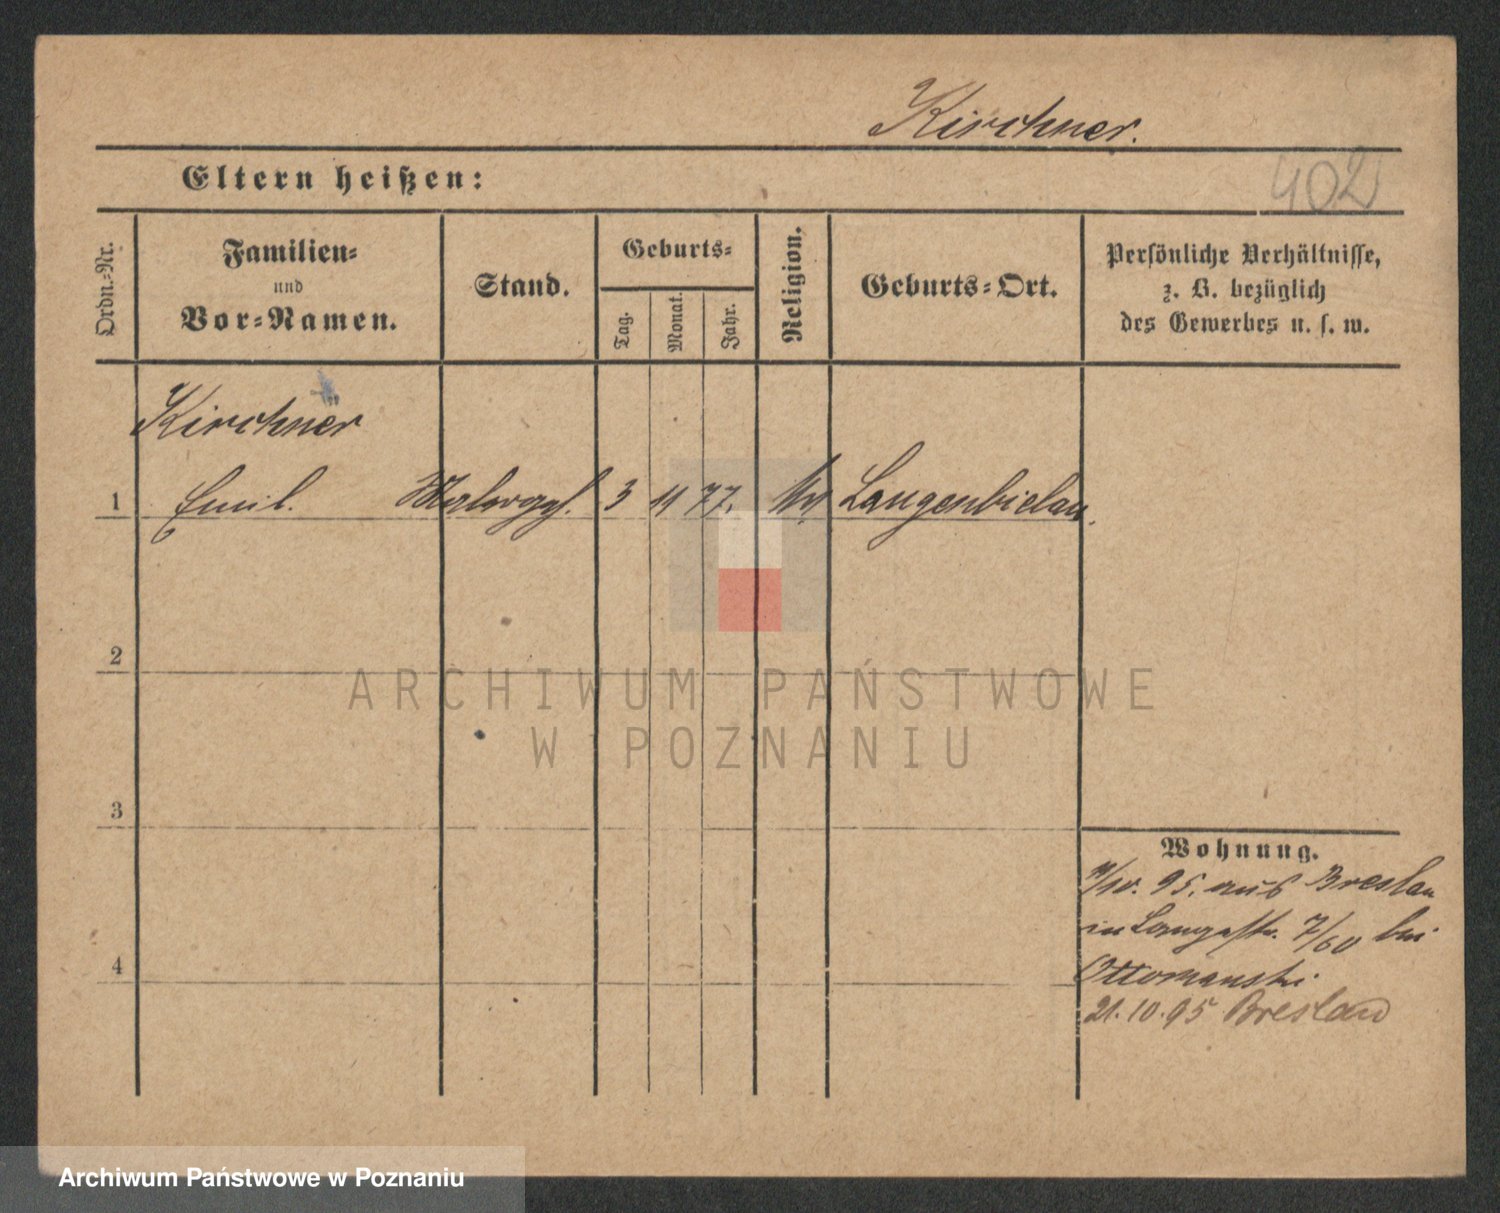 Kirchner.
Eltern heißen:
402
Ordn.-Nr.
Familien-
und
Vor-Namen.
Stand.
Geburts-
Tag.
Monat.
Jahr.
Religion.
Geburts-Ort.
Persönliche Verhältnisse,
z. B. bezüglich
des Gewerbes u. s. w.
Kirchner
1 Emil. Malergh. 3 11 77. Langenbielau.
2
ARCHIWUM PAŃSTWOWE
W POZNANIU
3
Wohnung.
/10. 95. aus Breslau
in Langestr. 7/60 bei
4
Ottomanski
21.10.95 Breslau
Archiwum Państwowe w Poznaniu